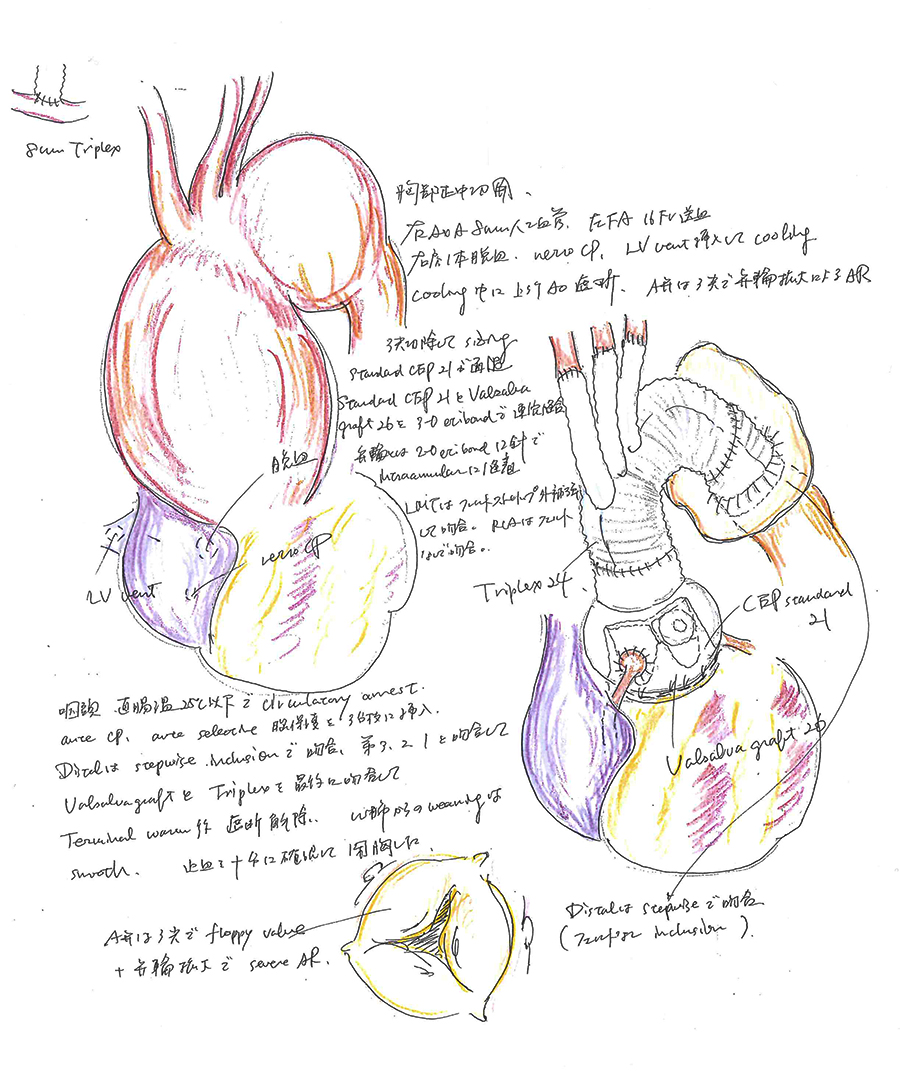 8mm Triplex
胸部正中切開、
右AxA 8mm人工血管、右FA 16Fr送血
右房1本脱血、retro CP、LV vent挿入して cooling
cooling中に上行Ao遮断、A弁は3尖で弁輪拡大によるAR
3尖切除して sizing
standard CEP 21で
Standard CEP 21と Valsalva
graft 26を 3-0 etibondで連続縫合
弁輪は 2-0 etibond 12針で
intraannularに
LMTはフェルトストリップ外補強
して吻合。RCAはフェルト
なしで吻合。
脱血
retro CP
LV vent
Triplex 24
CEP standard
21
Valsalva graft 26
咽頭 直腸温 25℃以下で circulatory arrest.
ante CP、ante selective 脳保護を 3分枝に挿入、
Distalは stepwise inclusionで吻合、第3、2、1と吻合して
Valsalva graftと Triplexを最終に吻合して
Terminal warm後 遮断解除、 からの weaningは
smooth. 止血を十分に確認して閉胸した.
A弁は3尖で floppy valve
+ 弁輪拡大で severe AR.
Distalは stepwiseで吻合
( inclusion ).